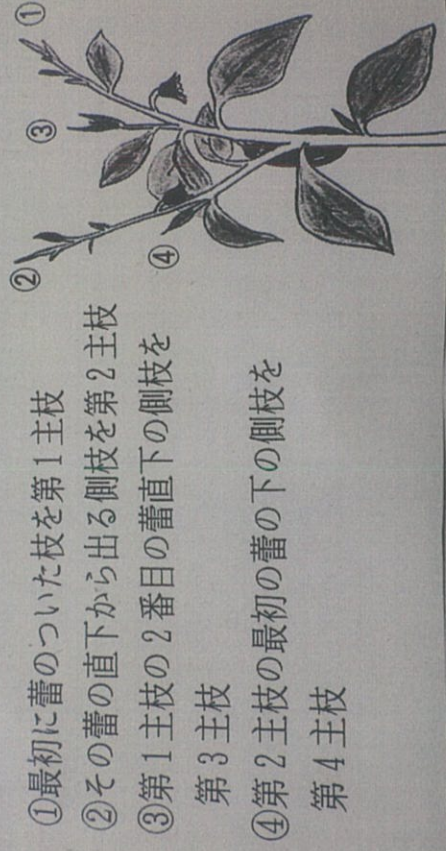 ①最初に蕾のついた枝を第1主枝
②その蕾の直下から出る側枝を第2主枝
③第1主枝の2番目の蕾直下の側枝を
第3主枝
④第2主枝の最初の蕾の下の側枝を
第4主枝
①
③
②
④